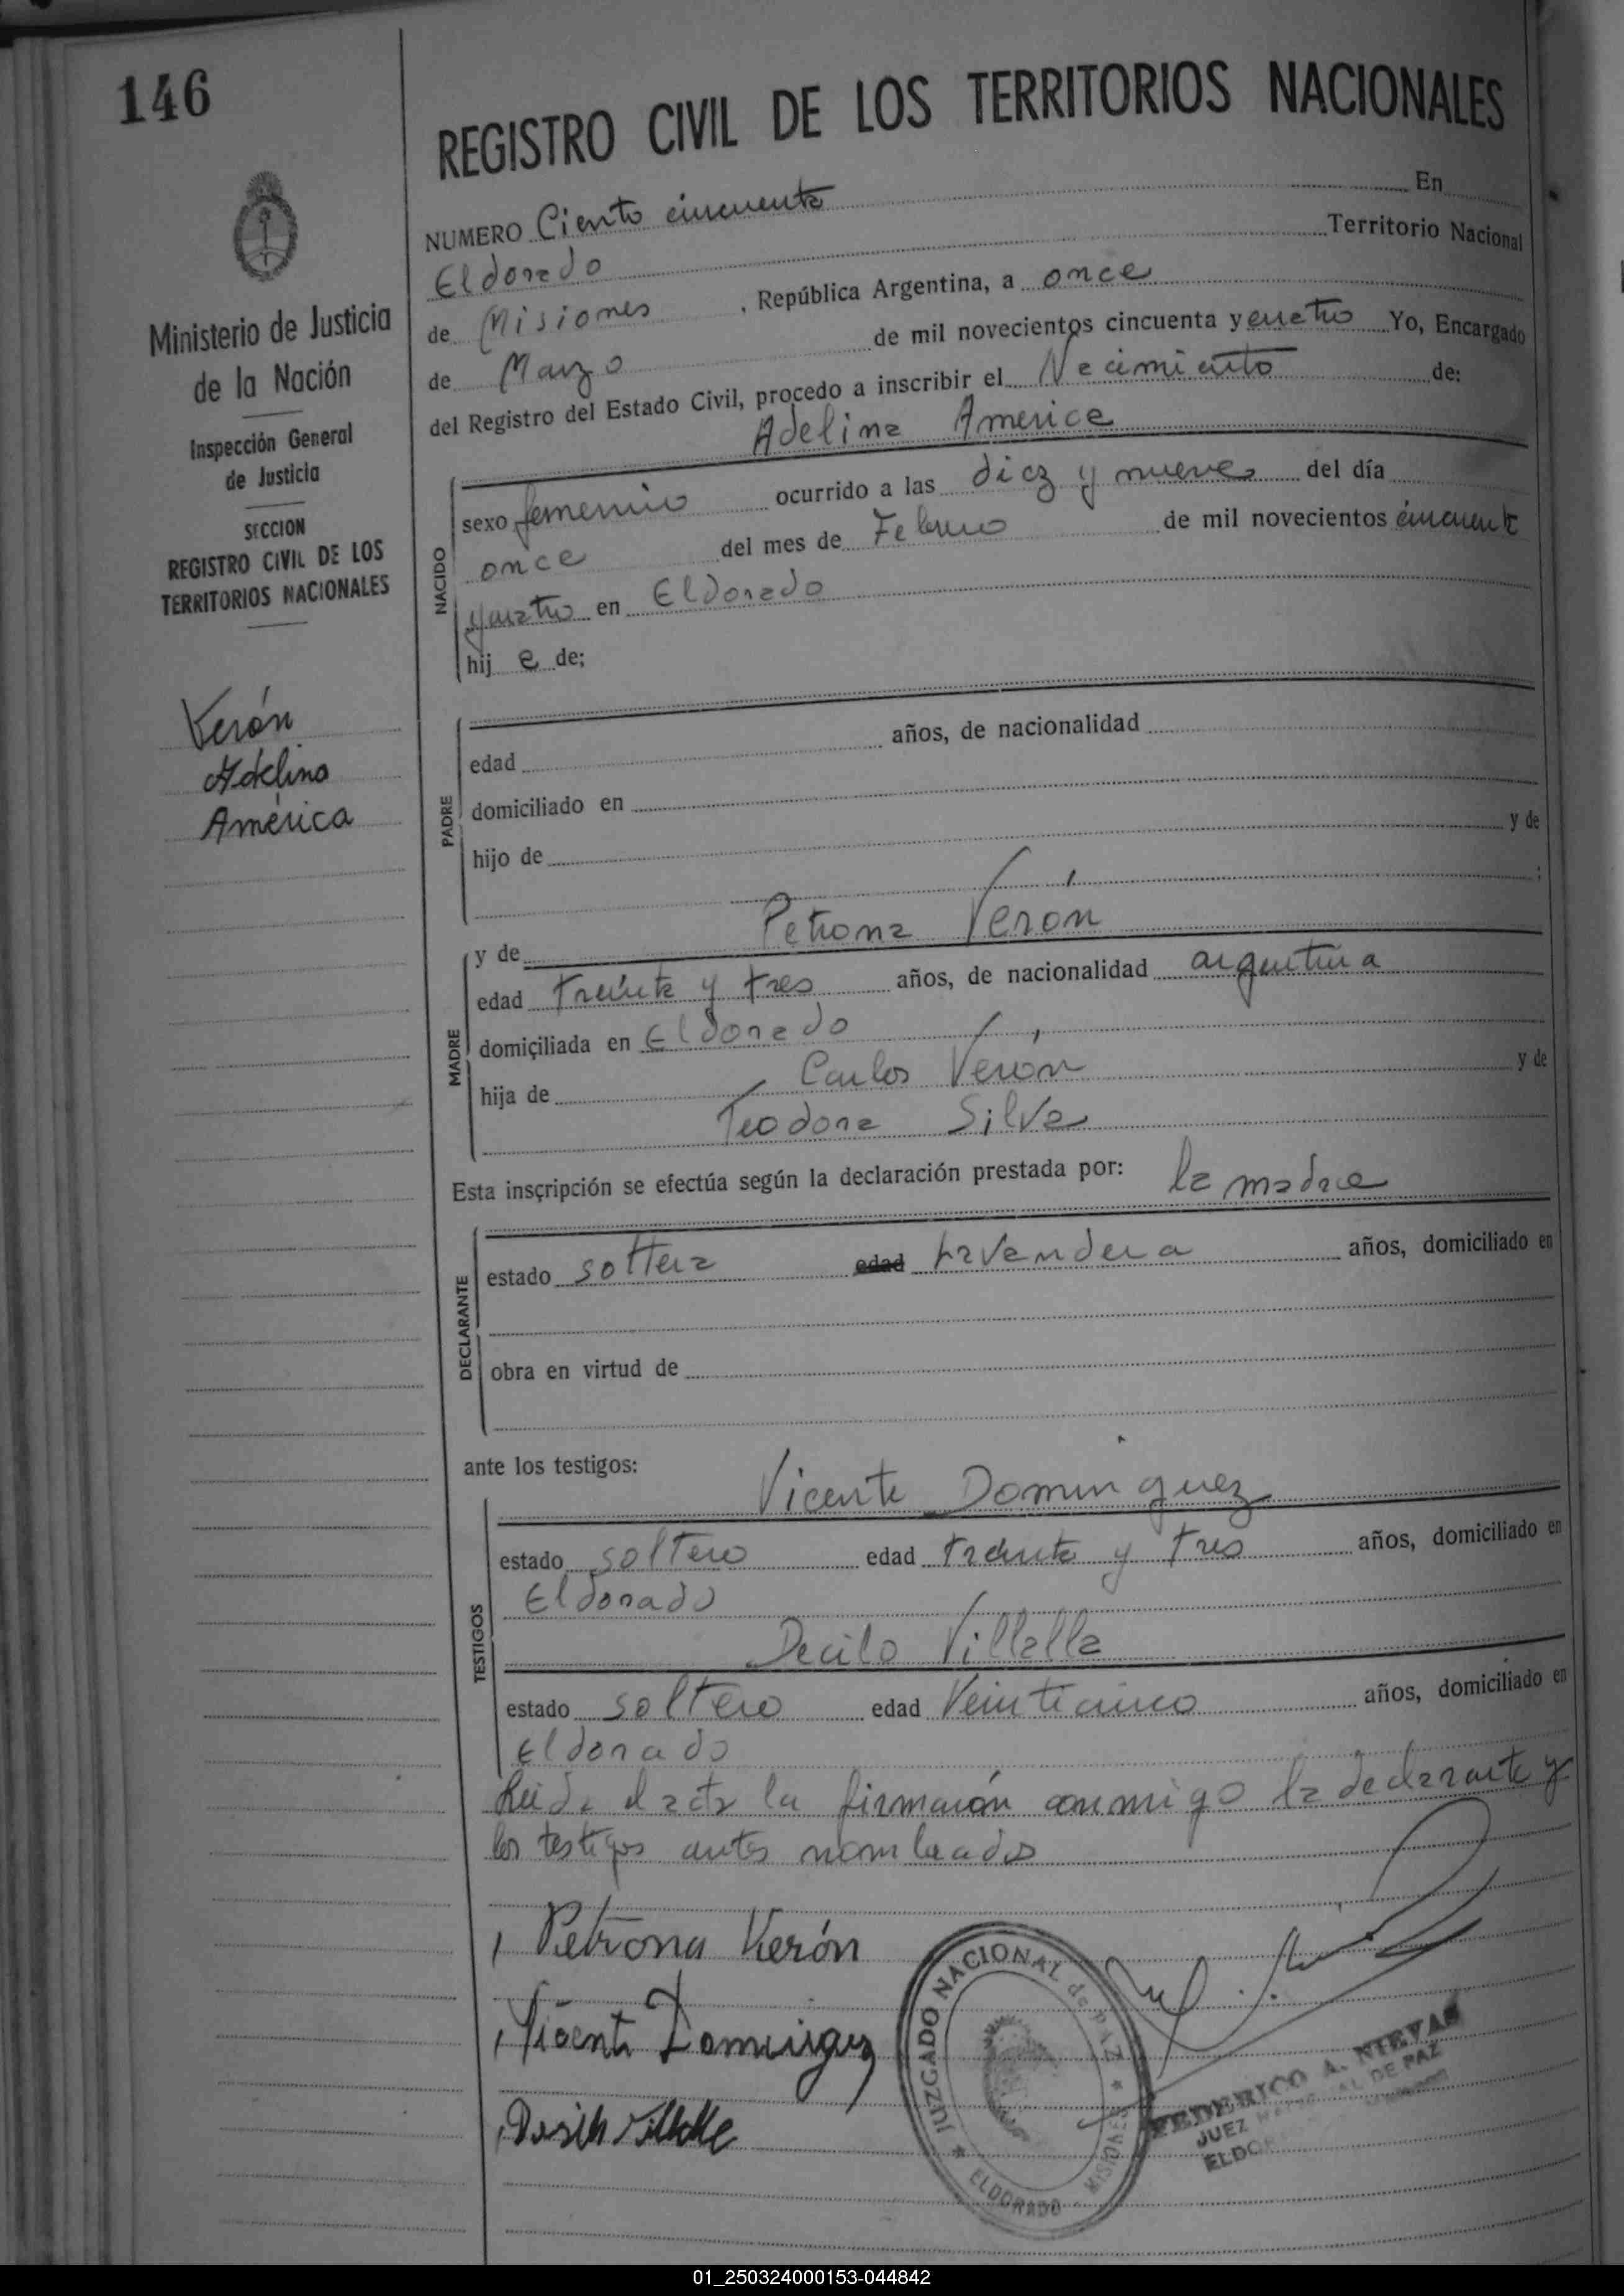 146
REGISTRO CIVIL DE LOS TERRITORIOS NACIONALES
NUMERO Ciento cincuenta En
Eldorado Territorio Nacional
de Misiones, República Argentina, a once
de Marzo de mil novecientos cincuenta y cuatro Yo, Encargado
del Registro del Estado Civil, procedo a inscribir el Nacimiento de:
Adelina America
Ministerio de Justicia
de la Nación
Inspección General
de Justicia
SECCION
REGISTRO CIVIL DE LOS
TERRITORIOS NACIONALES
Verón
Adelina
América
NACIDO
sexo femenino ocurrido a las diez y nueve del día
once del mes de Febrero de mil novecientos cincuenta
y cuatro en Eldorado
hij a de;
PADRE
edad años, de nacionalidad
domiciliado en
hijo de y de
;
MADRE
y de Petrona Verón
edad treinta y tres años, de nacionalidad argentina
domiciliada en Eldorado
hija de Carlos Verón y de
Teodora Silva
Esta inscripción se efectúa según la declaración prestada por: la madre
DECLARANTE
estado soltera edad Lavandera años, domiciliado en
obra en virtud de
ante los testigos:
Vicente Dominguez
TESTIGOS
estado soltero edad treinta y tres años, domiciliado en
Eldorado
Villalla
estado soltero edad Veinticinco años, domiciliado en
Eldorado
Leida el acta la firmarón conmigo la declarante y
los testigos antes nombrados
Petrona Verón
Vicente Dominguez
JUZGADO NACIONAL de PAZ
ELDORADO MISIONES
FEDERICO A. NIEVAS
JUEZ NACIONAL DE PAZ
01_250324000153-044842